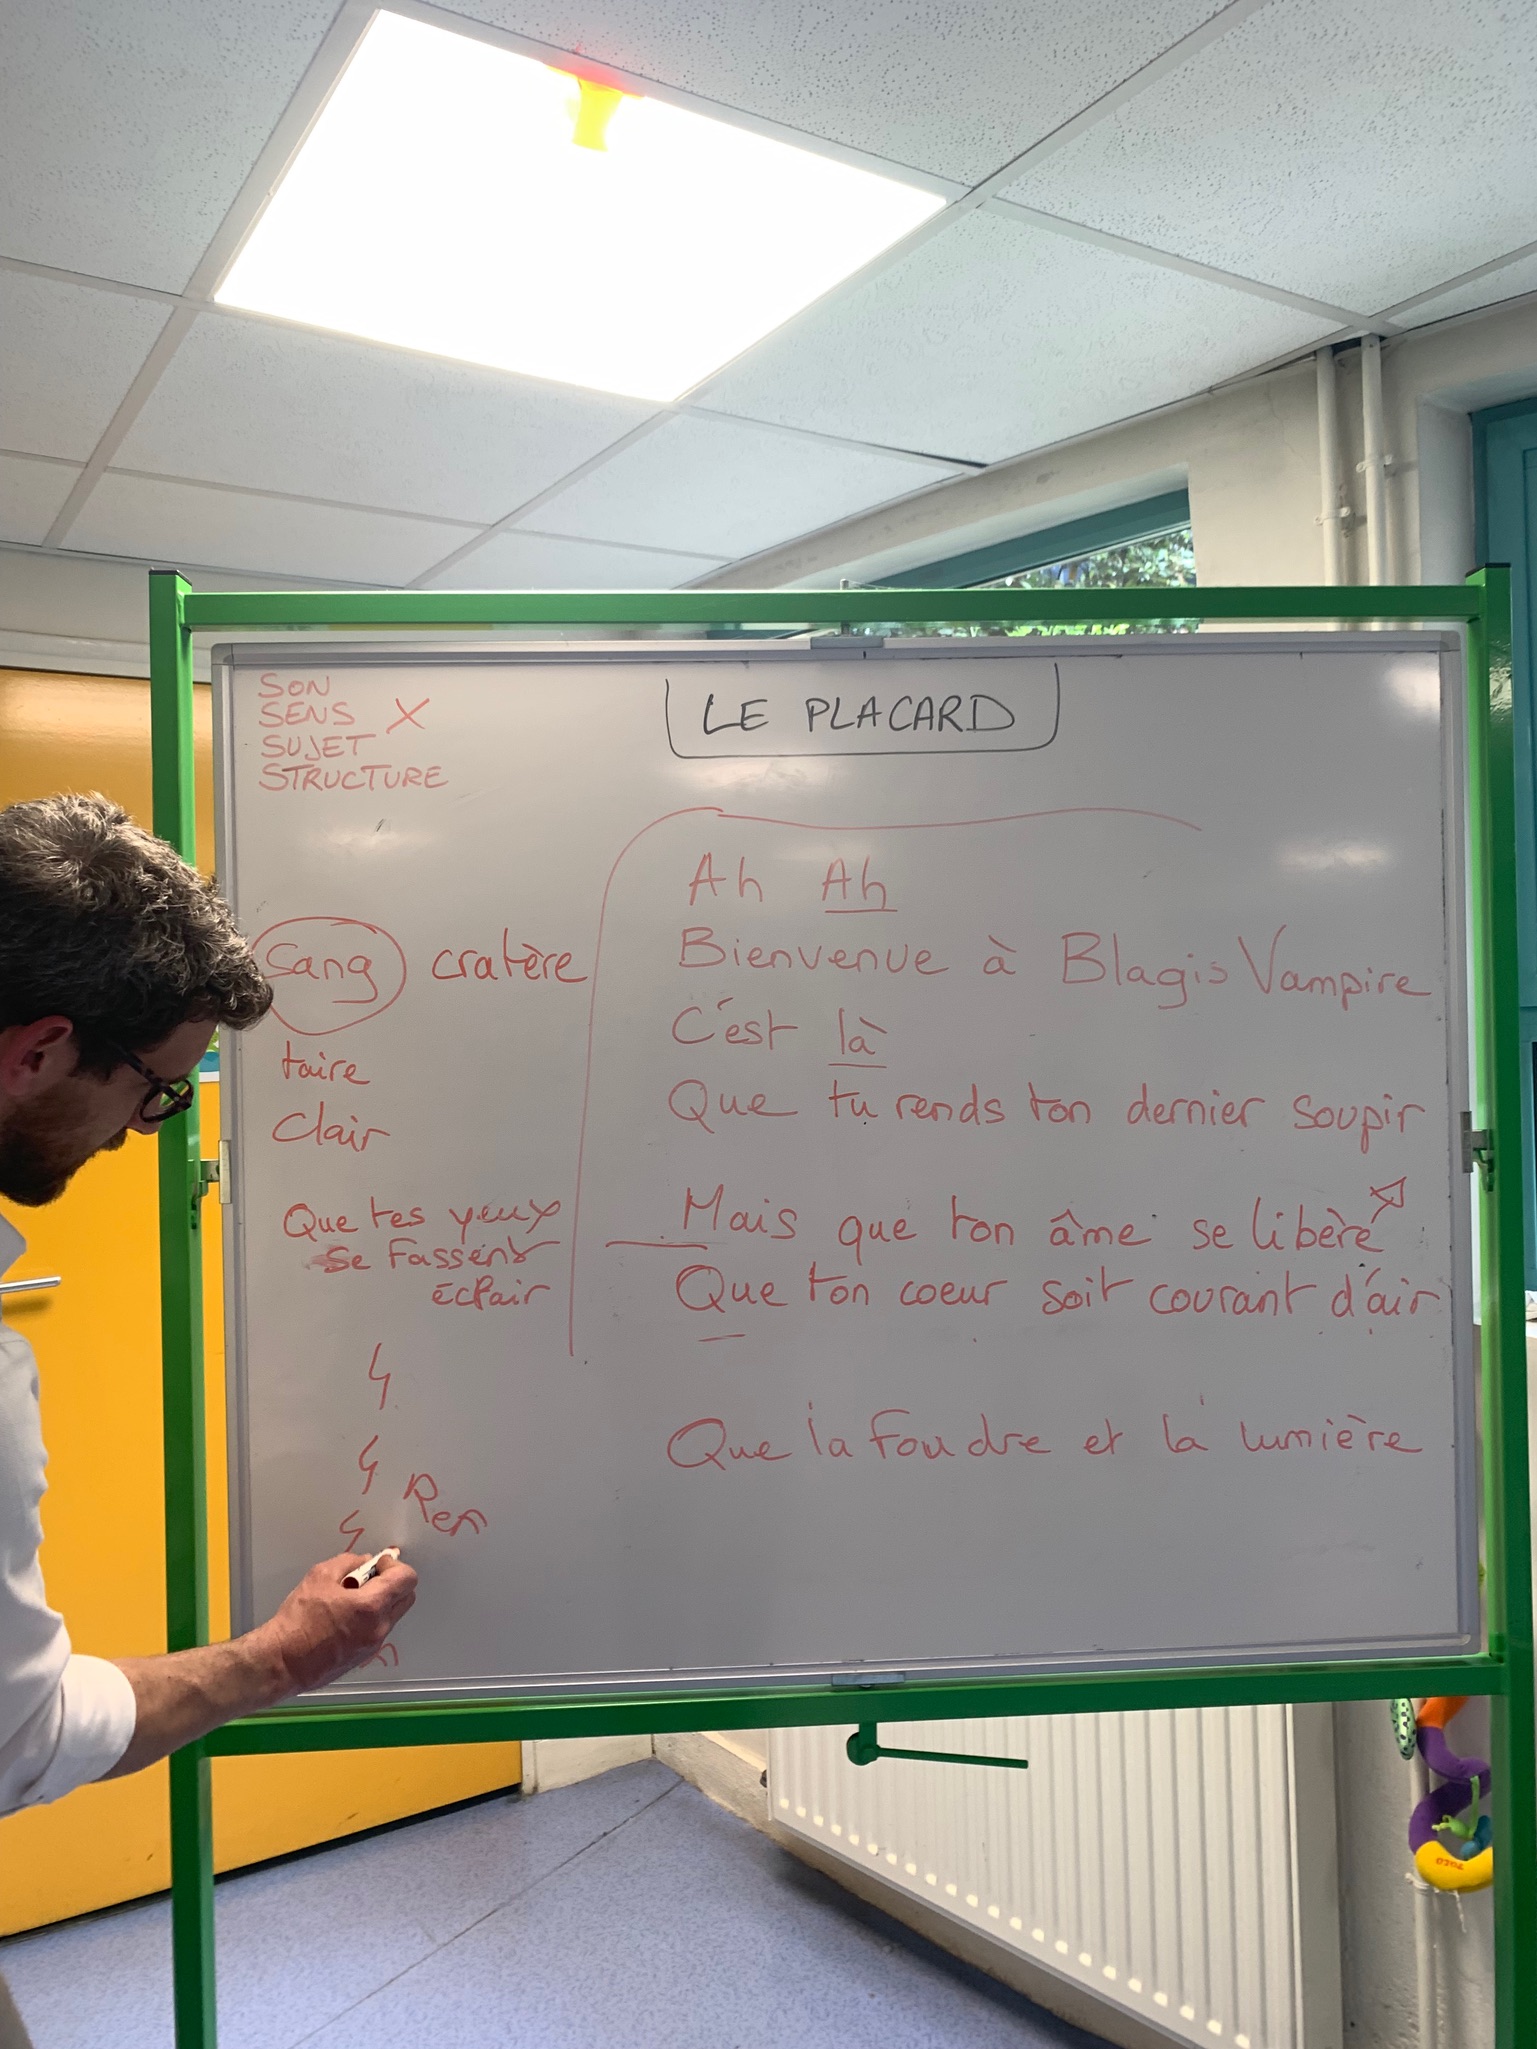 SON
SENS X
SUJET
STRUCTURE
LE PLACARD
Sang cratère
taire
clair
Que tes yeux
se fassent
éclair
Ren
Ah Ah
Bienvenue à Blagis Vampire
C'est là
Que tu rends ton dernier soupir
Mais que ton âme se libère
Que ton coeur soit courant d'air
Que la foudre et la lumière